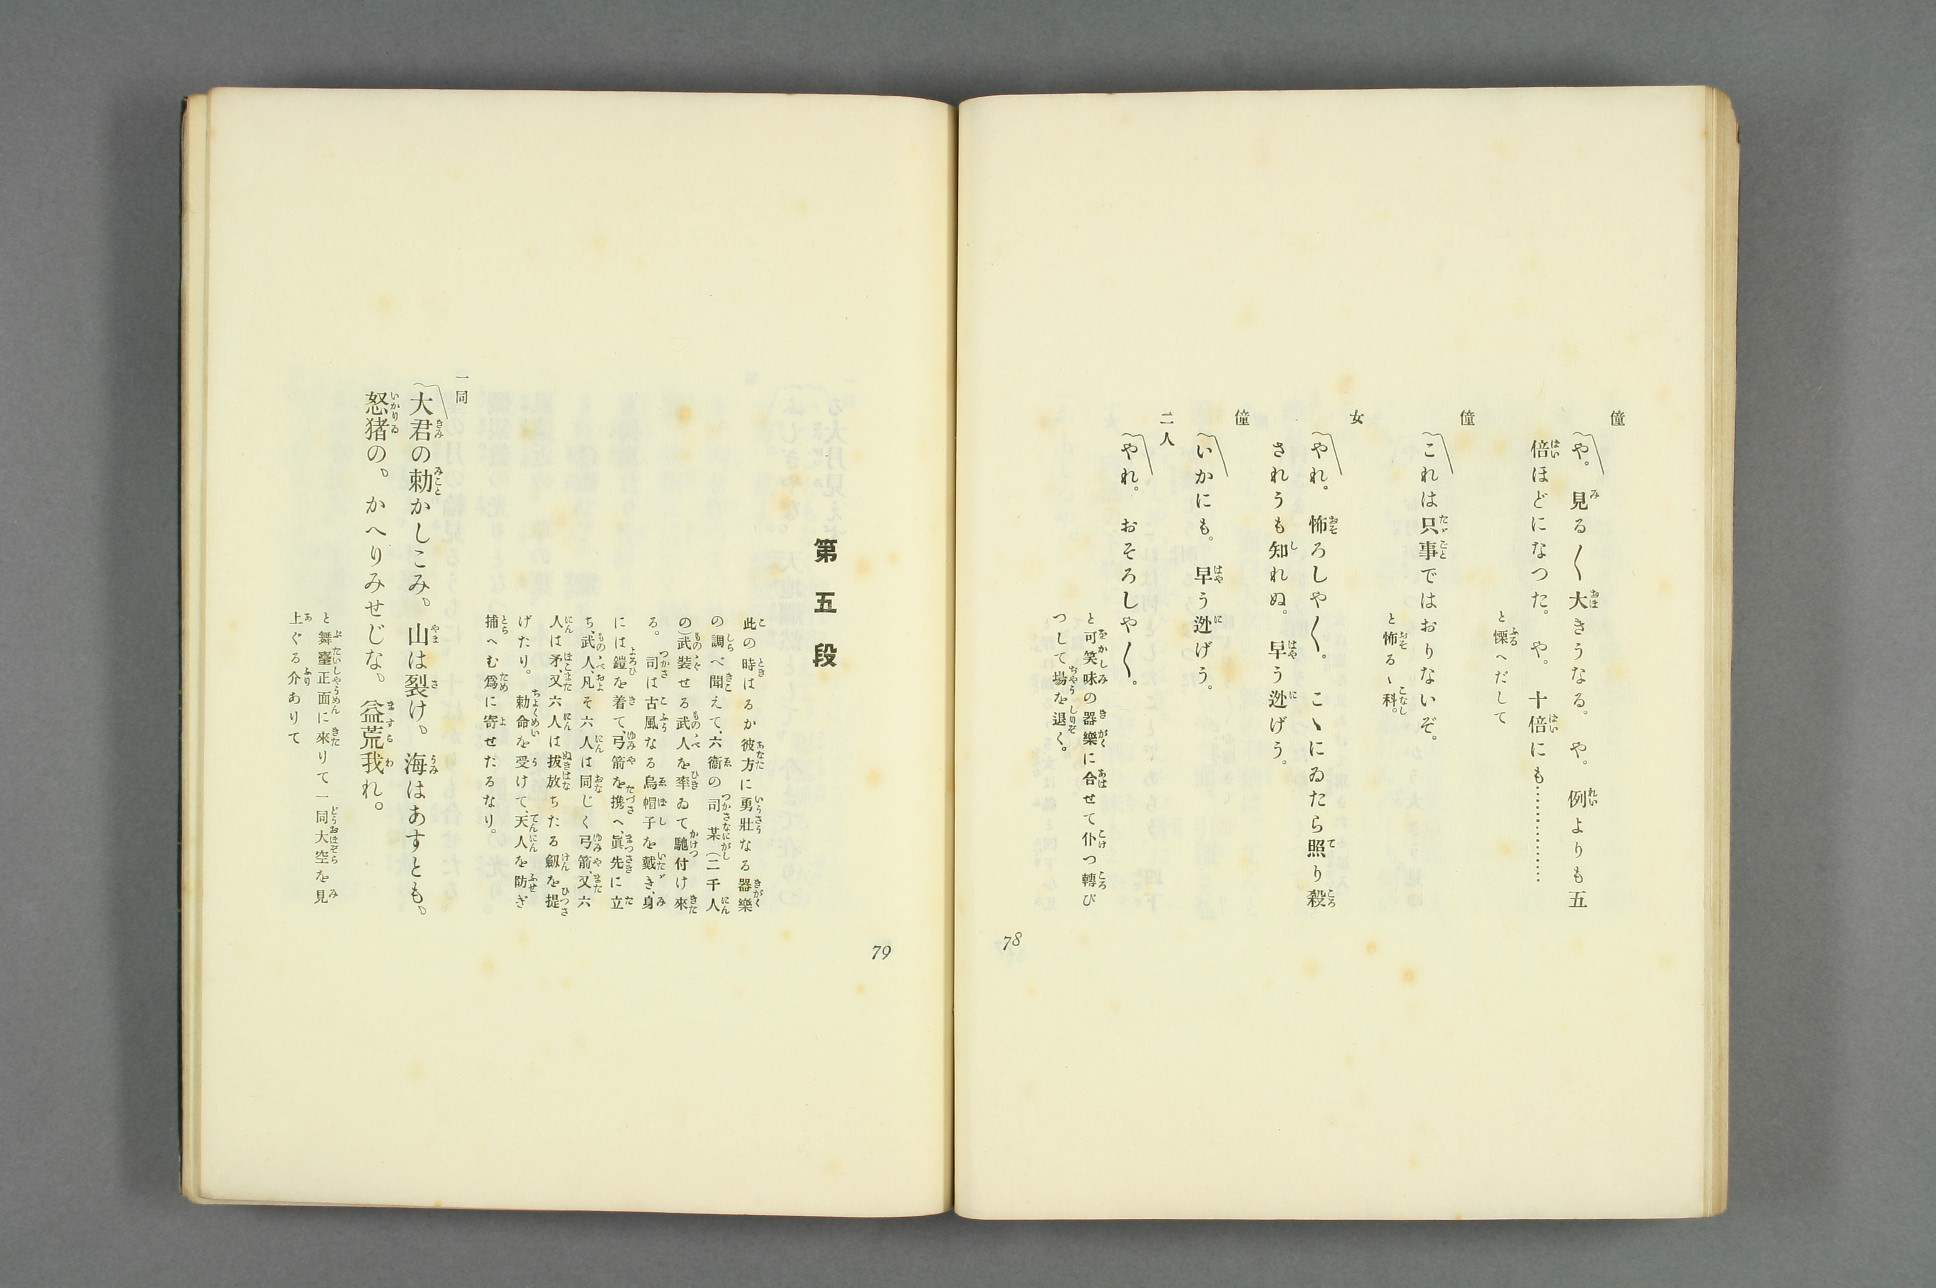 僮
や。見る〱大きうなる。や。例よりも五
倍ほどになつた。や。十倍にも……………
と慄へだして
僮
これは只事ではおりないぞ。
と怖るゝ科。
女
やれ。怖ろしや〱。こゝにゐたら照り殺
されうも知れぬ。早う迯げう。
僮
いかにも。早う迯げう。
二人
やれ。おそろしや〱。
と可笑味の器樂に合せて仆つ轉び
つして場を退く。
78
第五段
此の時はるか彼方に勇壯なる器樂
の調べ聞えて、六衞の司某(二千人
の)武裝せる武人を率ゐて馳付け來
る。司は古風なる烏帽子を戴き、身
には鎧を着て、弓箭を携へ、眞先に立
ち、武人凡そ六人は同じく弓箭、又六
人は矛、又六人は拔放ちたる劔を提
げたり。勅命を受けて、天人を防ぎ
捕へむ爲に寄せたるなり。
一同
大君の勅かしこみ。山は裂け、海はあすとも。
怒猪の。かへりみせじな、益荒我れ。
と舞臺正面に來りて一同大空を見
上ぐる介ありて
79